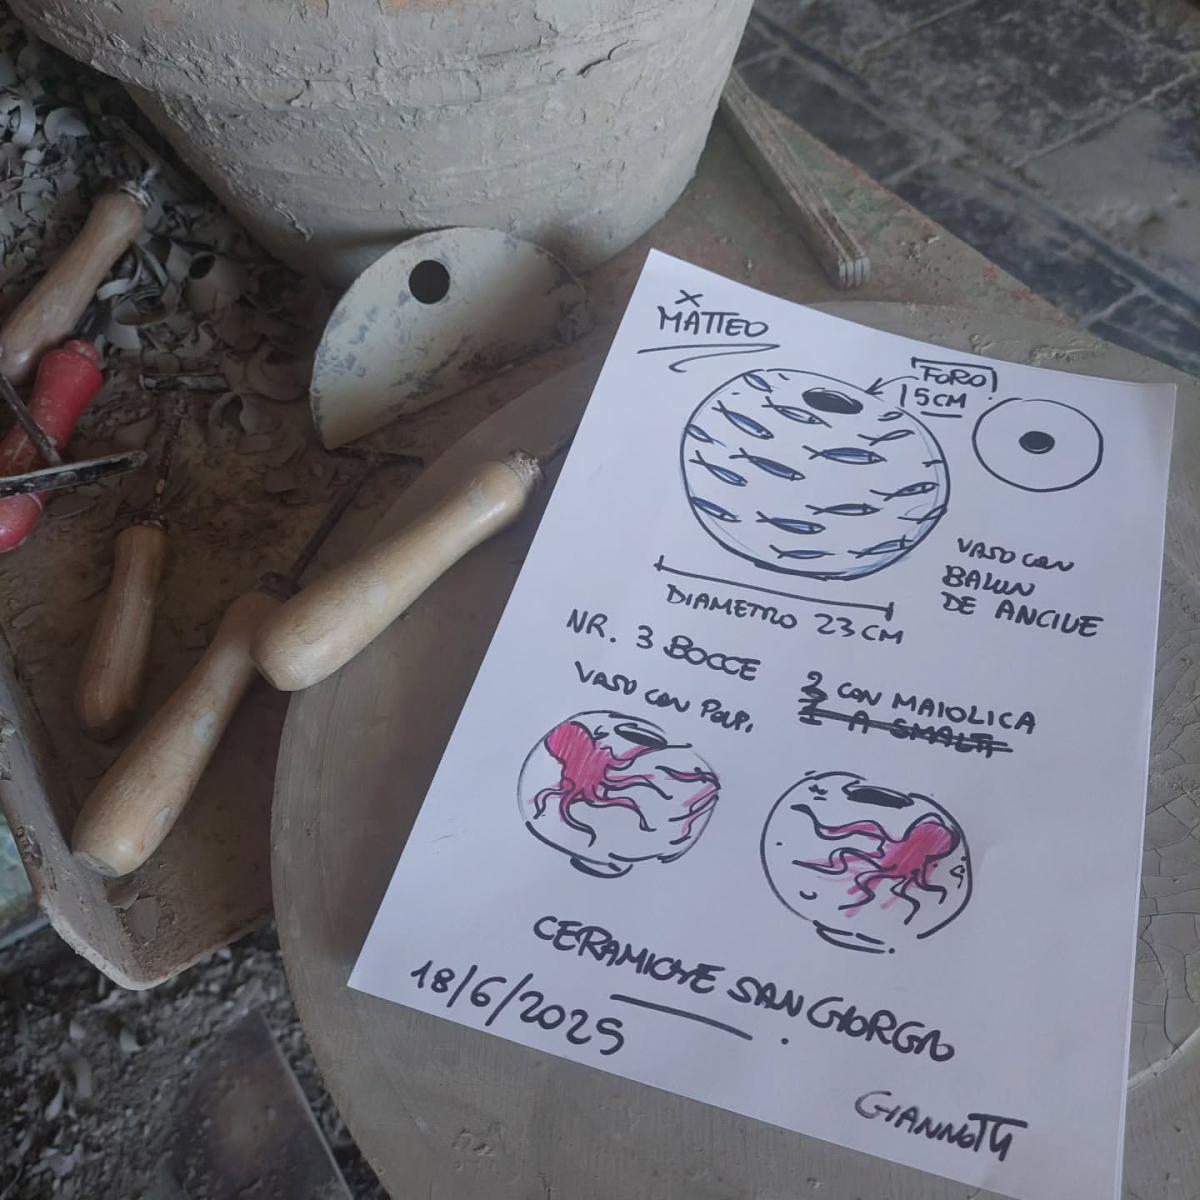 X
MATTEO
FORO
5 CM
VASO CON
BALUN
DE ANCIUE
DIAMETRO 23 CM
NR. 3 BOCCE
2 CON MAIOLICA
1 A SMALTI
VASO CON POLPI
CERAMICHE SAN GIORGIO
18/6/2025
GIANNOTTI